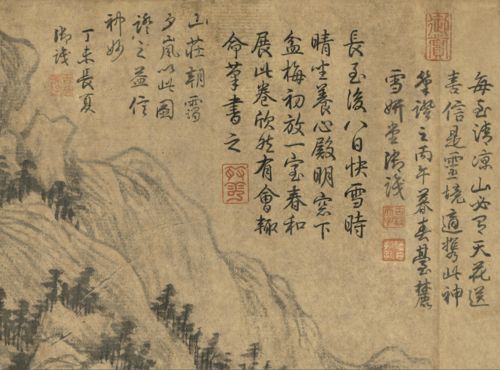 每至清凉山必有天花送
喜信是靈境適攜此神
筆證之丙午暮春臺麓
雪妍堂御識
長至後八日快雪時
晴坐養心殿明窓下
盆梅初放一室春和
展此卷欣然有會輙
命筆書之
山莊朝靄
夕嵐以此圖
證之益信
神妙
丁未長夏
御識